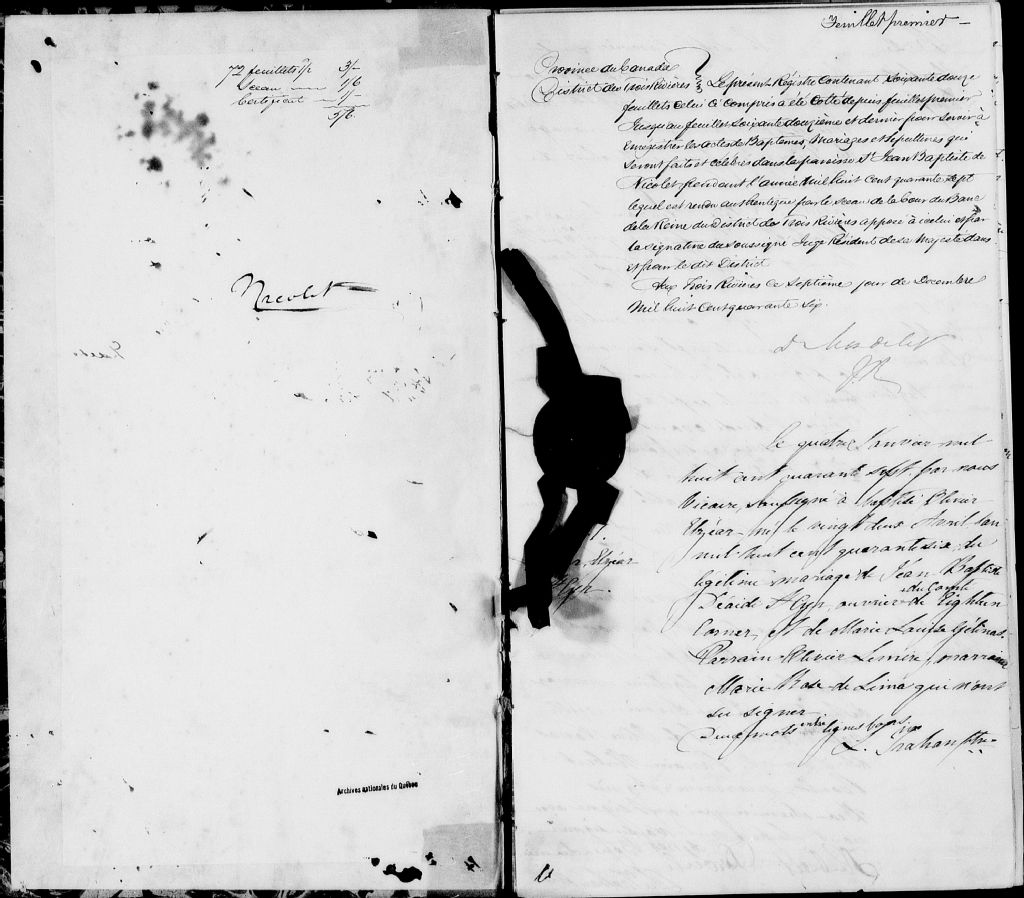 72 feuillets 3/-
Sceau 1/6
Certificat 1/-
5/6
Nicolet
Archives nationales du Québec
Feuillet premier
Province du Canada
District des Trois Rivières } Le présent Régistre contenant soixante douze
feuillets celui ci compris a été cotté depuis feuillet premier
jusqu'au feuillet soixante douzième et dernier pour servir à
Enregistrer les actes de Baptêmes, Mariages et sépultures qui
seront faits et célébrés dans la paroisse St Jean Baptiste de
Nicolet pendant l'année Mil huit cent quarante sept
lequel est rendu authentique par le sceau de la Cour du Banc
de la Reine du District des Trois Rivières apposé à icelui et par
la signature du soussigné Juge Résident de sa Majesté dans
et pour le dit District
Aux Trois Rivières ce septième jour de Decembre
Mil huit cent quarante six
Le quatre Janvier mil
huit cent quarante sept, par nous
Vicaire soussigné a été baptisé Olivier
Elzéar né le vingt deux Avril
mil huit cent quarante six, du
légitime mariage de Jean Baptiste
du Comté
St Cyr, ouvrier de
Corner, et de Marie Louise Gélinas.
Parrain Olivier Lemire, marraine
Marie Rose de Lima qui n'ont
su signer
Deux mots entre lignes bons
L. Trahan Ptre
Elzéar
St Cyr.